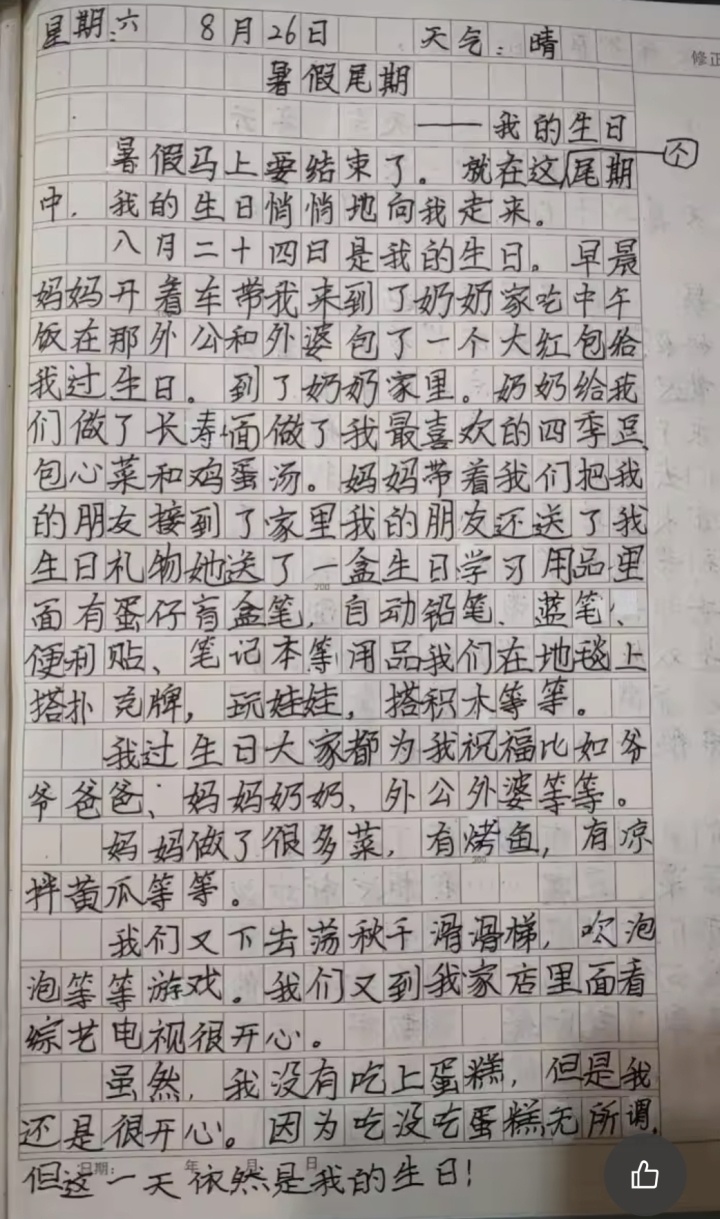 星期:六 8月26日 天气:晴
修正
暑假尾期
——我的生日
暑假马上要结束了。就在这个尾期
中,我的生日悄悄地向我走来。
八月二十四日是我的生日。早晨
妈妈开着车带我来到了奶奶家吃中午
饭在那外公和外婆包了一个大红包给
我过生日。到了奶奶家里。奶奶给我
们做了长寿面做了我最喜欢的四季豆、
包心菜和鸡蛋汤。妈妈带着我们把我
的朋友接到了家里我的朋友还送了我
生日礼物她送了一盒生日学习用品里
200
面有蛋仔盲盒笔,自动铅笔、蓝笔、
便利贴、笔记本等用品我们在地毯上
搭扑克牌,玩娃娃,搭积木等等。
我过生日大家都为我祝福比如爷
爷爸爸、妈妈奶奶、外公外婆等等。
妈妈做了很多菜,有烤鱼,有凉
拌黄瓜等等。
我们又下去荡秋千滑滑梯,吹泡
泡等等游戏。我们又到我家店里面看
综艺电视很开心。
虽然,我没有吃上蛋糕,但是我
还是很开心。因为吃没吃蛋糕无所谓,
日期: 年 月 日
但这一天依然是我的生日!